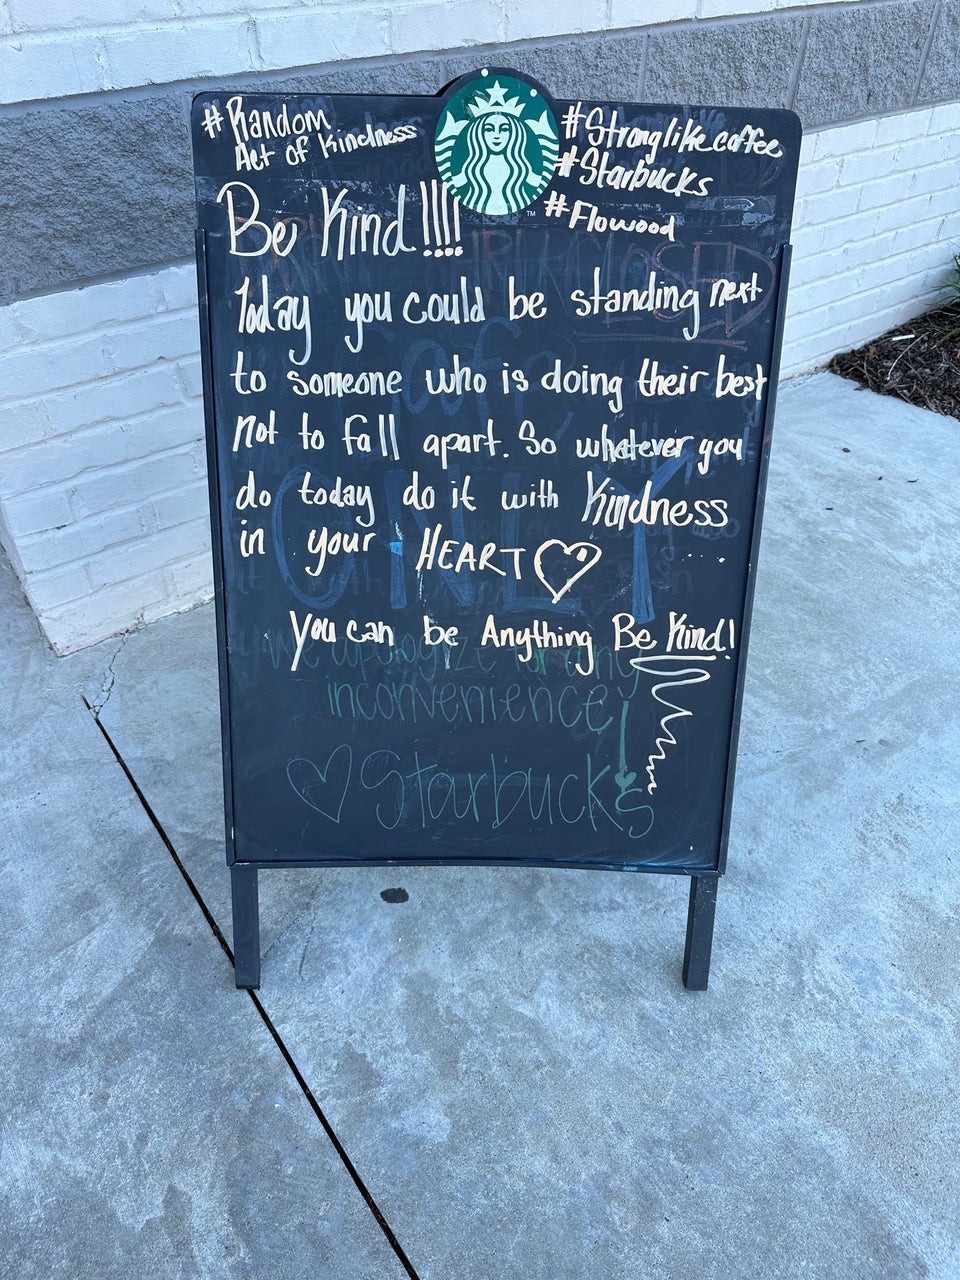 #Random
Act of Kindness
#Stronglikecoffee
#Starbucks
#Flowood
TM
Be Kind!!!!
Today you could be standing next
to someone who is doing their best
not to fall apart. So whatever you
do today do it with Kindness
in your HEART
You can be Anything Be Kind!
CLOSED
Cafe
ONLY
We apologize for any
inconvenience!
Starbucks